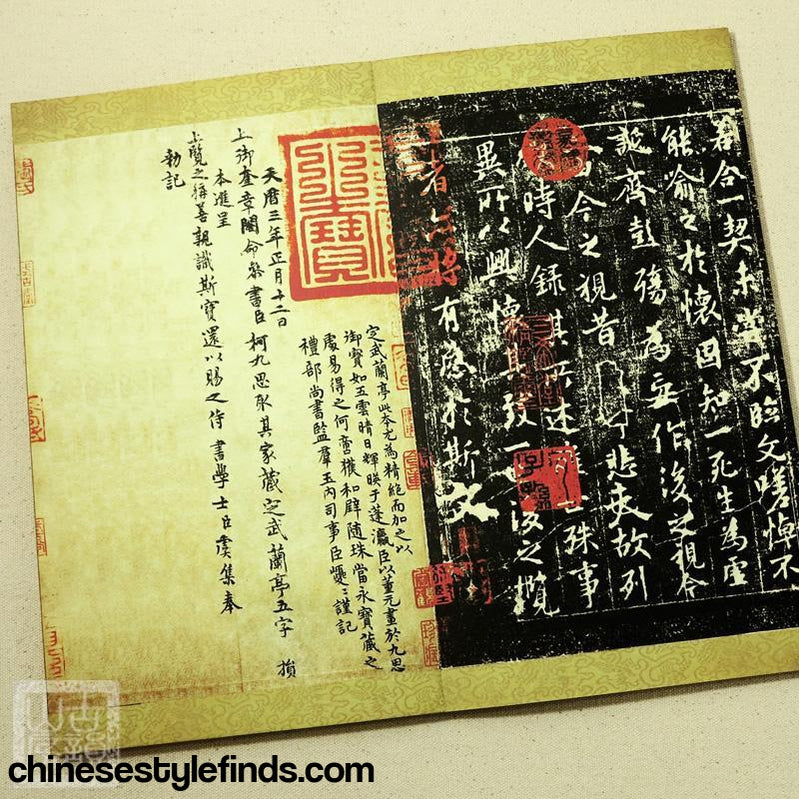 若合一契未嘗不臨文嗟悼不
能喻之於懷固知一死生為虛
誕齊彭殤為妄作後之視今
今之視昔悲夫故列
時人錄其所述世殊事
異所以興懷其致一也後之攬
者亦將有感於斯文
定武蘭亭此本尤為精絕而加之以
御寶如五雲晴日輝映于蓬瀛臣以董元畫於九思
處易得之何啻獲和璧隨珠當永寶藏之
禮部尚書監羣玉內司事臣巙〻謹記
天曆三年正月十二日
上御奎章閣命參書臣柯九思取其家藏定武蘭亭五字損
本進呈
上覽之稱善親識斯寶還以賜之侍書學士臣虞集奉
勅記
chinesestylefinds.com